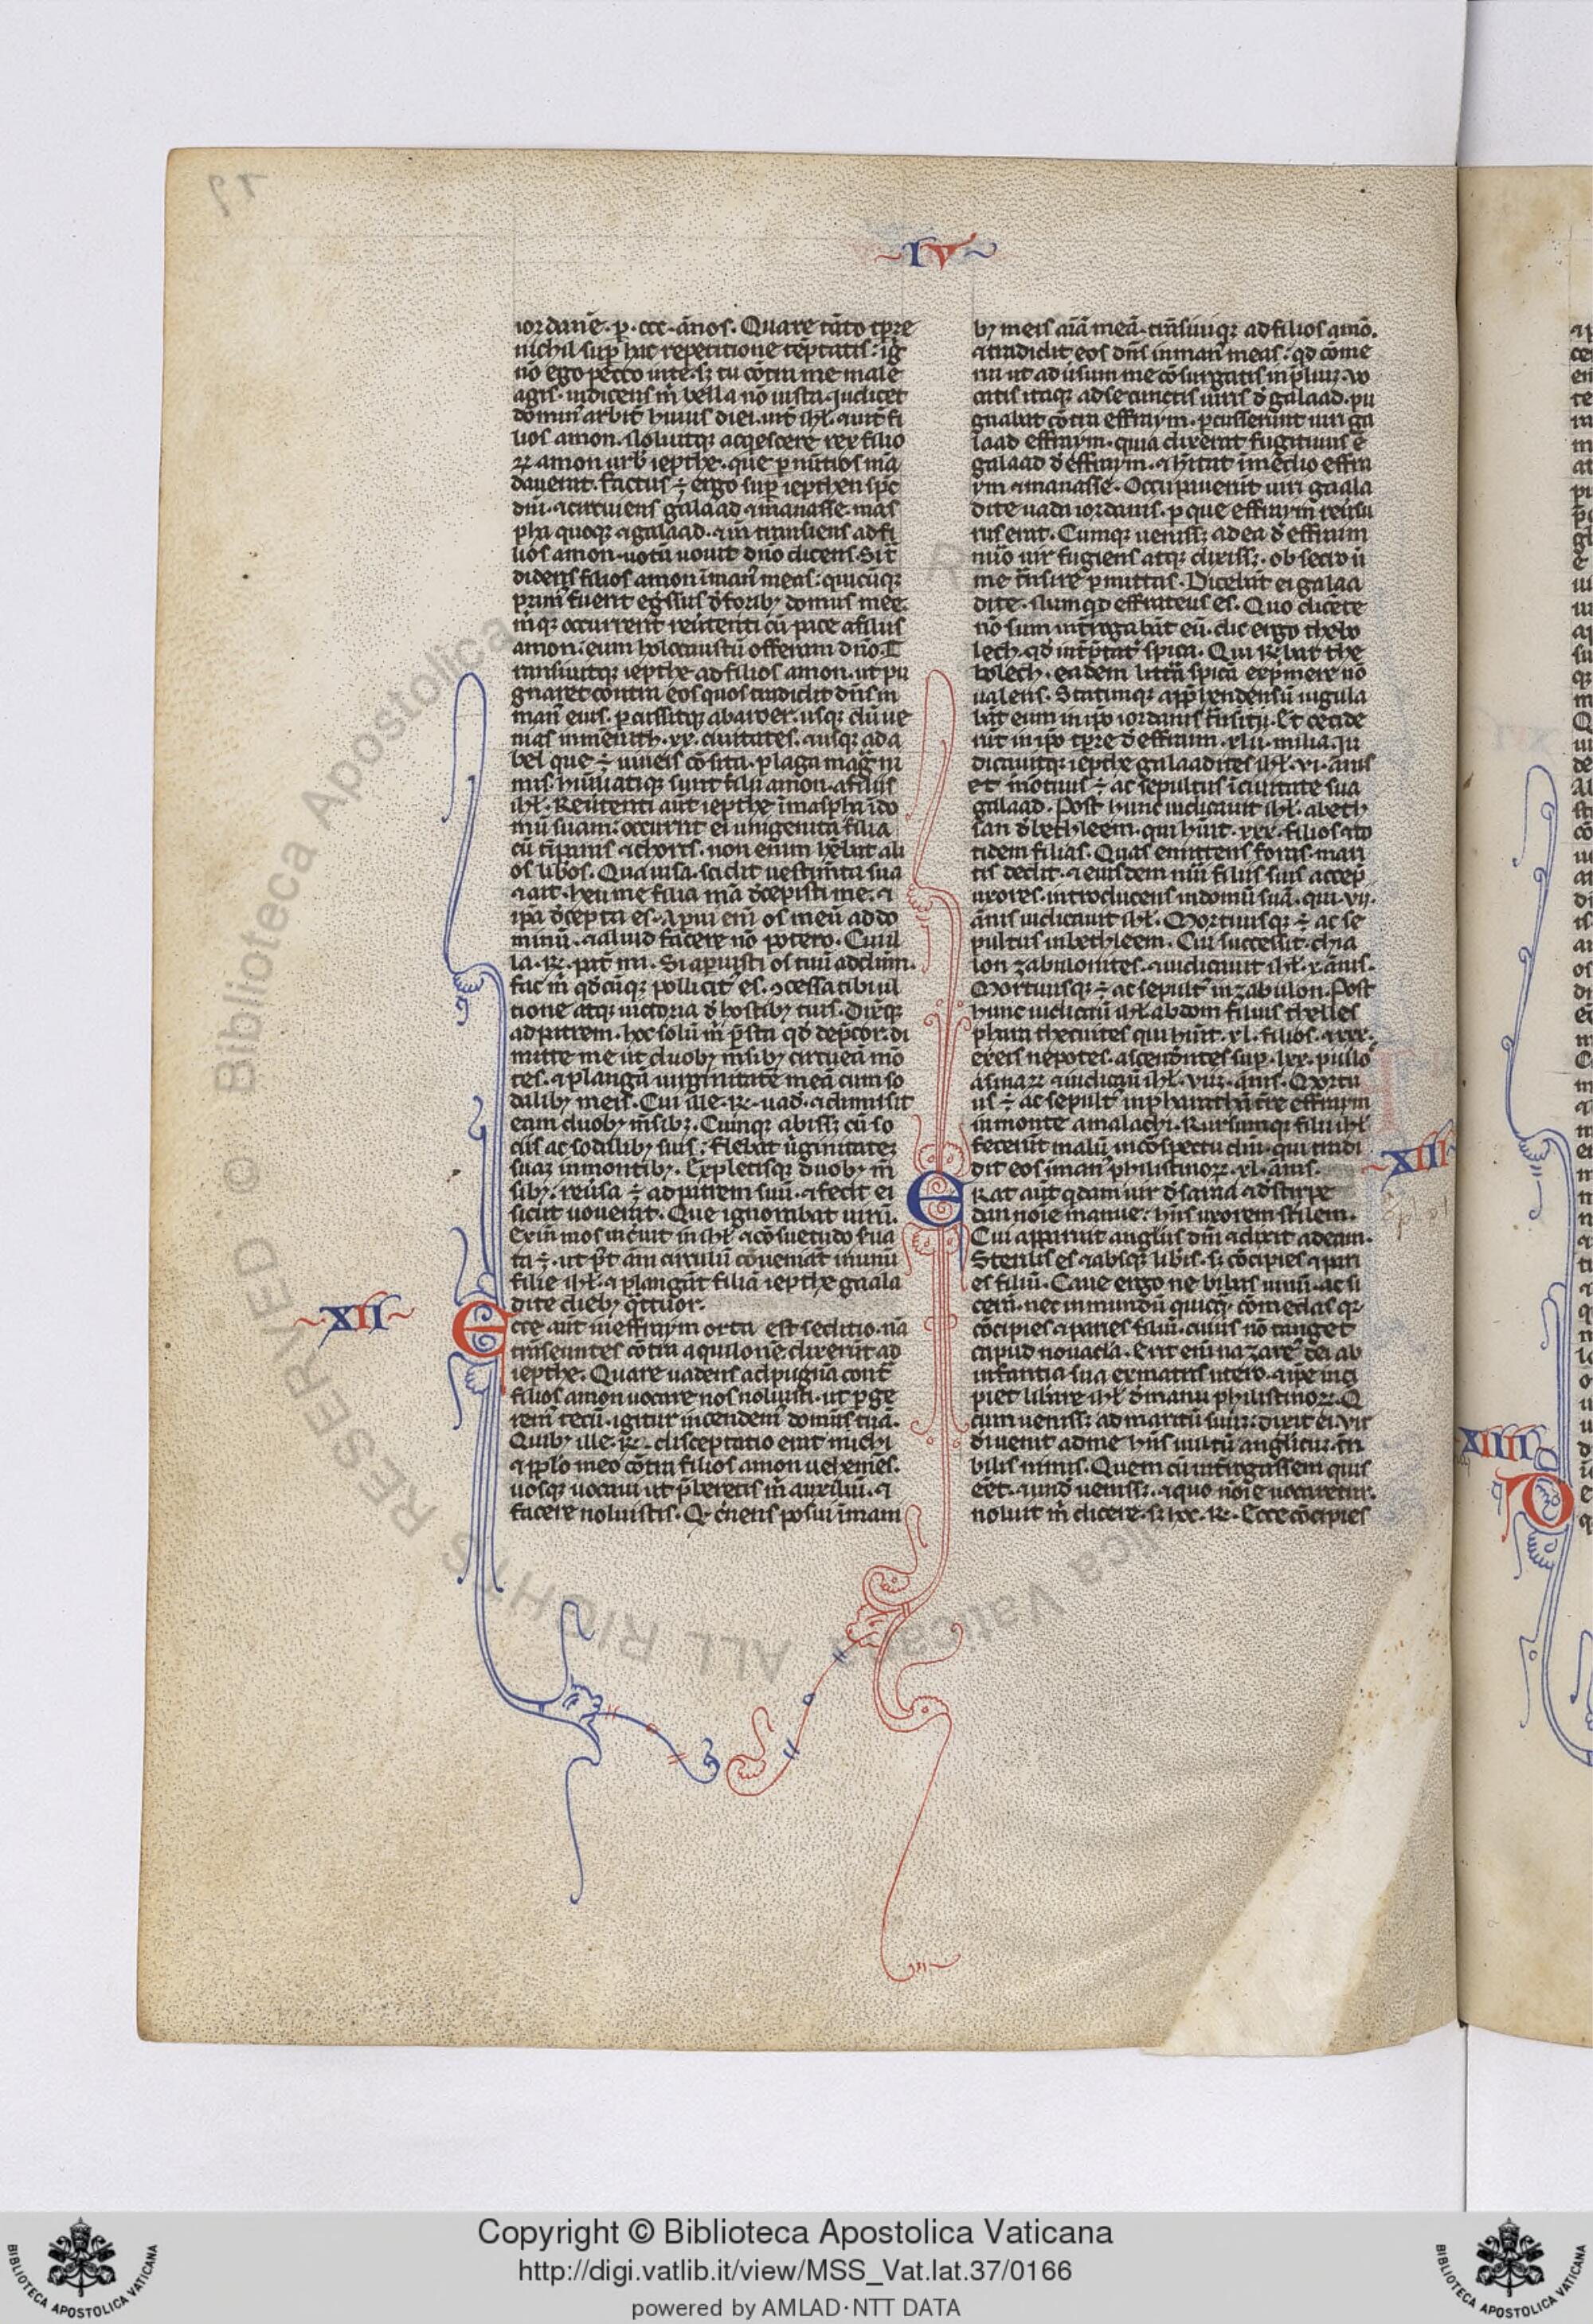 IV
iordanē. p. ccc. ānos. Quare tāto tp̄re
nichil sup̄ hac repetitione tēptatis: ig̃
nō ego pecco in te. sꝫ tu cōtra me male
agis. indicens m̄ bella nō iusta. Iudicet
domin⁹ arbit̄ huius diei. int̄ isrl̄. & int̄ fi
lios amon. Noluitqꝫ acq̄escere rex filio
ꝝ amon urb̄ iepthe. que p̄ nūtios mā
dauerat. Factus ÷ ergo sup̄ iepthen sp̄c
dn̄i. & circuiens galaad & manasse. mas
pha quoqꝫ & galaad. & in̄ transiens ad fi
lios amon. uotū uouit dn̄o dicens. Si t̄
dideris filios amon ī man⁹ meas: quicūqꝫ
prim⁹ fuerit eg̃ssus d̄ foribꝫ domus mee.
m̄qꝫ occurrerit reūtenti cū pace a filiis
amon: eum holocaustū offeram dn̄o. T
ransiuitqꝫ iepthe ad filios amon. ut pu
gnaret contra eos quos tradidit dn̄s in
man⁹ eius. p̄cussitqꝫ ab aroer. usqꝫ dū ue
nias in menith. xx. ciuitates. & usqꝫ ad a
bel que ÷ uineis cōsita. plaga magⁿ ni
mis. hūiliatiqꝫ sunt filii amon. a filiis
isrl̄. Reūtenti aut̄ iepthe ī maspha ī do
mū suam: occurrit ei unigenita filia
cū tīpanis & choris. non enim hēbat ali
os libos. Qua uisa. scidit uestim̄ta sua
& ait. heu me filia mā d̄cepisti me. &
ipa d̄cepta es. Aperui eni os meū ad do
minū. & aliud facere nō potero. Cui il
la. R̄. pat̄ mi. Si aperuisti os tuū ad dūm.
fac m̄ qd̄cūqꝫ pollicit⁹ es. ꝯcessa tibi ul
tione atqꝫ uictoria d̄ hostibꝫ tuis. Dixitqꝫ
ad patrem. hoc solū m̄ p̄sta qd̄ dep̄cor. di
mitte me ut duobꝫ m̄sibꝫ circueā mō
tes. & plangā uirginitatē meā cum so
dalibꝫ meis. Cui ille. R̄. uad̄. & dimisit
eam duobꝫ m̄sibꝫ. Cumqꝫ abissꝫ cū so
ciis ac sodalibꝫ suis: flebat ūginitateꝫ
suaꝫ in montibꝫ. Expletisqꝫ duobꝫ m̄
sibꝫ. reūsa ÷ ad patrem suū. & fecit ei
sicut uouerat. Que ignorabat uirū.
Exin̄ mos incuit in isrl̄ & cōsuetudo s̄ua
ta ÷. ut p̄t ām circulū cōueniāt in unū
filie isrl̄. & plangāt filiā iepthe galaa
dite diebꝫ q̄ttuor.
XII
Ecce aut̄ in effraym orta est seditio. nā
trāseuntes cōtra aquilonē. dixerūt ad
iepthe. Quare uadens ad pugnā cont̄
filios amon uocare nos noluisti. ut p̄ge
rem⁹ tecū. igitur incendem⁹ domū tuā.
Quibꝫ ille. R̄. disceptatio erat michi
& pplo meo cōtra filios amon uehemēs.
uosqꝫ uocaui ut p̄beretis m̄ auxiliū. &
facere noluistis. Qd̄ c̄nens posui ī mani
bꝫ meis aīā meā. trāsiuiqꝫ ad filios amō.
& tradidit eos dn̄s in man⁹ meas: qd̄ com̄e
rui ut adūsum me cōsurgatis in p̄liuꝫ. Vo
catis itaqꝫ ad se cunctis uiris d̄ galaad. pu
gnabat cōtra effraym. p̄cusserunt uiri ga
laad effraym. quia dixerat fugitiuus ē
galaad d̄ effraym. & h̄itat ī medio effra
ym & manasse. Occupauerūt uiri galaa
dite uada iordanis. p que effraym reūsu
rus erat. Cumqꝫ uenissꝫ ad ea d̄ effraim
nūo uir fugiens atqꝫ dixissꝫ. obsecro ū
me t̄nsire p̄mittas. Dicebāt ei galaa
dite. Numqd̄ effrateus es. Quo dicēte
nō sum int̄rogabāt eū. dic ergo thebo
lech. qd̄ int̄p̄tat̄ spica. Qui R̄bat the
bolech. eadem litt̄a spicā exp̄mere nō
ualens. Statimqꝫ app̄hensū iugula
bāt eum in ipo iordanis t̄nsitu. Et cecide
rūt in ipo tp̄re d̄ effraim. xlii. milia. Iu
dicauitqꝫ iepthe galaadites isrl̄. vi. ānis
et mortuus ÷ ac sepultus ī ciuitate sua
galaad. Post hunc iudicauit isrl̄. abeth
san d̄ bethleem. qui hūit. xxx. filios & to
tidem filias. Quas emittens foras. mari
tis dedit. & eiusdem nūi filiis suis accep̄
uxores. introducens in domū suā. qui. vii.
ānis iudicauit isrl̄. Mortuusqꝫ ÷ ac se
pultus in bethleem. Cui successit. ahia
lon zabulonites. & iudicauit isrl̄. x. ānis.
Mortuusqꝫ ÷ ac sepult⁹ in zabulon. Post
hunc iudicauit isrl̄. abdom filius thelles
pharathecuites qui hūit. xl. filios. & xxx.
ex eis nepotes. ascend̄ntes sup̄. lxx. pullo
asinaꝝ & iudicauit isrl̄. viii. ānis. Mortu
us ÷ ac sepult⁹ in pharathū t̄re effraym
in monte amalachi. Rursumqꝫ filii isrl̄
fecerūt malū in cōspectu dn̄i. qui tradi
dit eos ī man⁹ philistinoꝝ. xl. ānis.
XIII
Erat aut̄ qdam uir d̄ saraa & d̄ stirpe
dan noīe manue: hn̄s uxorem st̄ilem.
Cui apparuit angl̄us dn̄i & dixit ad eam.
Sterilis es & absqꝫ libis. sꝫ cōcipies & pari
es filiū. Caue ergo ne bibas uinū. ac si
cerā. nec inmundū quicqꝫ cōmedas qꝫ
cōcipies & paries filiū. cuius nō tanget
capud nouacla. Erit eni nazare⁹ dei ab
infantia sua ex matris utero. & ipe inci
piet libare isrl̄ d̄ manu philistinoꝝ. Q
cum uenissꝫ ad maritū suuꝫ: dixit ei. Vir
d̄i uenit ad me hn̄s uultū anglicuꝫ. t̄ri
bilis nimis. Quem cū int̄rogassem quis
eēt. & und̄ uenissꝫ. & quo noīe uocaretur.
noluit m̄ dicere. sꝫ hoc. R̄. Ecce cōcipies
XIIII
Copyright © Biblioteca Apostolica Vaticana
http://digi.vatlib.it/view/MSS_Vat.lat.37/0166
powered by AMLAD·NTT DATA
BIBLIOTECA APOSTOLICA VATICANA
BIBLIOTECA APOSTOLICA VATICANA